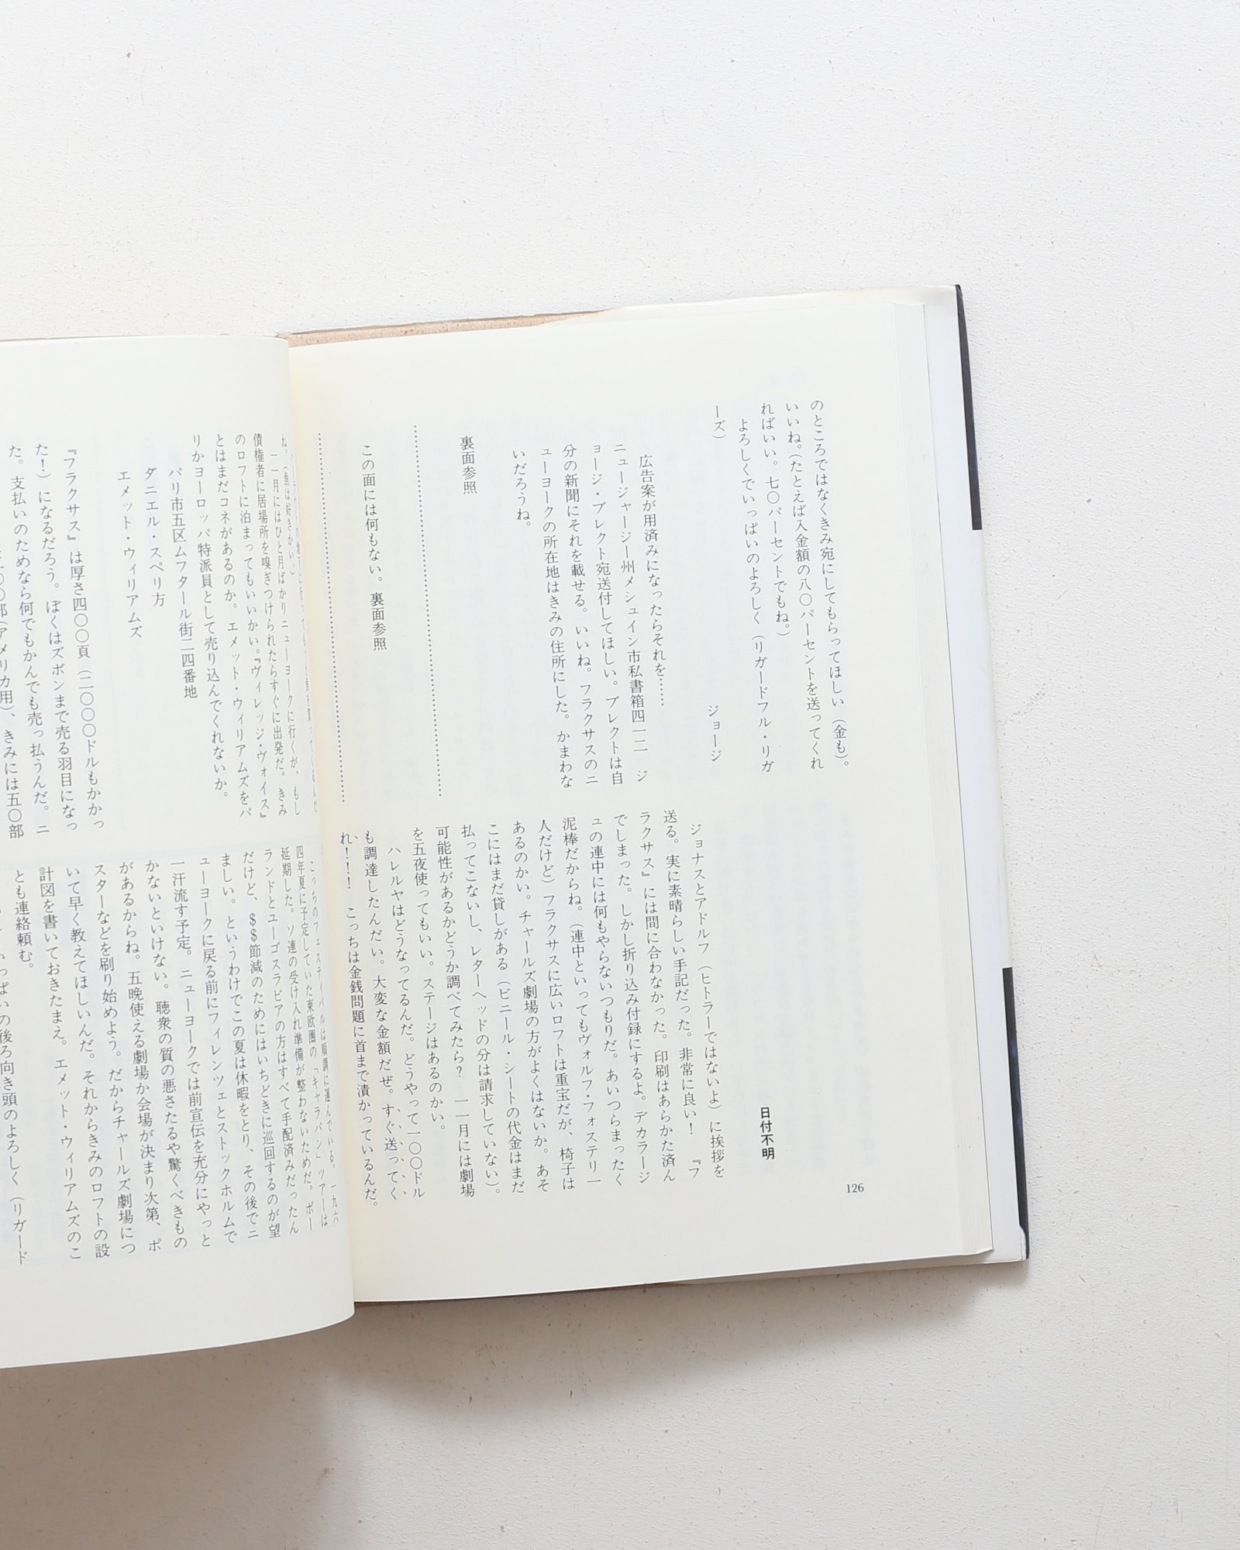 のところではなくきみ宛にしてもらってほしい（金も）。
いいね。（たとえば入金額の八〇パーセントを送ってくれ
ればいい。七〇パーセントでもね。）
よろしくでいっぱいのよろしく（リガードフル・リガ
ーズ）
ジョージ
広告案が用済みになったらそれを……
ニュージャージー州メシュイン市私書箱四一二　ジ
ョージ・ブレクト宛送付してほしい。ブレクトは自
分の新聞にそれを載せる。いいね。フラクサスのニ
ューヨークの所在地はきみの住所にした。かまわな
いだろうね。
裏面参照
この面には何もない。裏面参照
日付不明
ジョナスとアドルフ（ヒトラーではないよ）に挨拶を
送る。実に素晴らしい手記だった。非常に良い！　『フ
ラクサス』には間に合わなかった。印刷はあらかた済ん
でしまった。しかし折り込み付録にするよ。デカラージ
ュの連中には何もやらないつもりだ。あいつらまったく
泥棒だからね。（連中といってもヴォルフ・フォステリ一
人だけど）フラクサスに広いロフトは重宝だが、椅子は
あるのかい。チャールズ劇場の方がよくはないか。あそ
こにはまだ貸しがある（ビニール・シートの代金はまだ
払ってこないし、レターヘッドの分は請求していない）。
可能性があるかどうか調べてみたら？　一一月には劇場
を五夜使ってもいい。ステージはあるのかい。
ハレルヤはどうなってるんだ。どうやって一〇〇ドル
も調達したんだい。大変な金額だぜ。すぐ送ってく
れ！！！　こっちは金銭問題に首まで漬かっているんだ。
126
一一月にはひと月ばかりニューヨークに行くが、もし
債権者に居場所を嗅ぎつけられたらすぐに出発だ。きみ
のロフトに泊まってもいいかい。『ヴィレッジ・ヴォイス』
とはまだコネがあるのか。エメット・ウィリアムズをパ
リかヨーロッパ特派員として売り込んでくれないか。
パリ市五区ムフタール街二四番地
ダニエル・スペリ方
エメット・ウィリアムズ
『フラクサス』は厚さ四〇〇頁（二〇〇〇ドルもかかっ
た！）になるだろう。ぼくはズボンまで売る羽目になっ
た。支払いのためなら何でもかんでも売っ払うんだ。ニ
〇〇部（アメリカ用）、きみには五〇部
こっちのフェスティバルは順調に運んでいる。一九六
四年夏に予定していた東欧圏の「キャラバン」ツアーは
延期した。ソ連の受け入れ準備が整わないためだ。ポー
ランドとユーゴスラビアの方はすべて手配済みだったん
だけど、$$節減のためにはいちどきに巡回するのが望
ましい。というわけでこの夏は休暇をとり、その後でニ
ューヨークに戻る前にフィレンツェとストックホルムで
一汗流す予定。ニューヨークでは前宣伝を充分にやっと
かないといけない。聴衆の質の悪さたるや驚くべきもの
があるからね。五晩使える劇場か会場が決まり次第、ポ
スターなどを刷り始めよう。だからチャールズ劇場につ
いて早く教えてほしいんだ。それからきみのロフトの設
計図を書いておきたまえ。エメット・ウィリアムズのこ
とも連絡頼む。
いっぱいの後ろ向き頭のよろしく（リガード